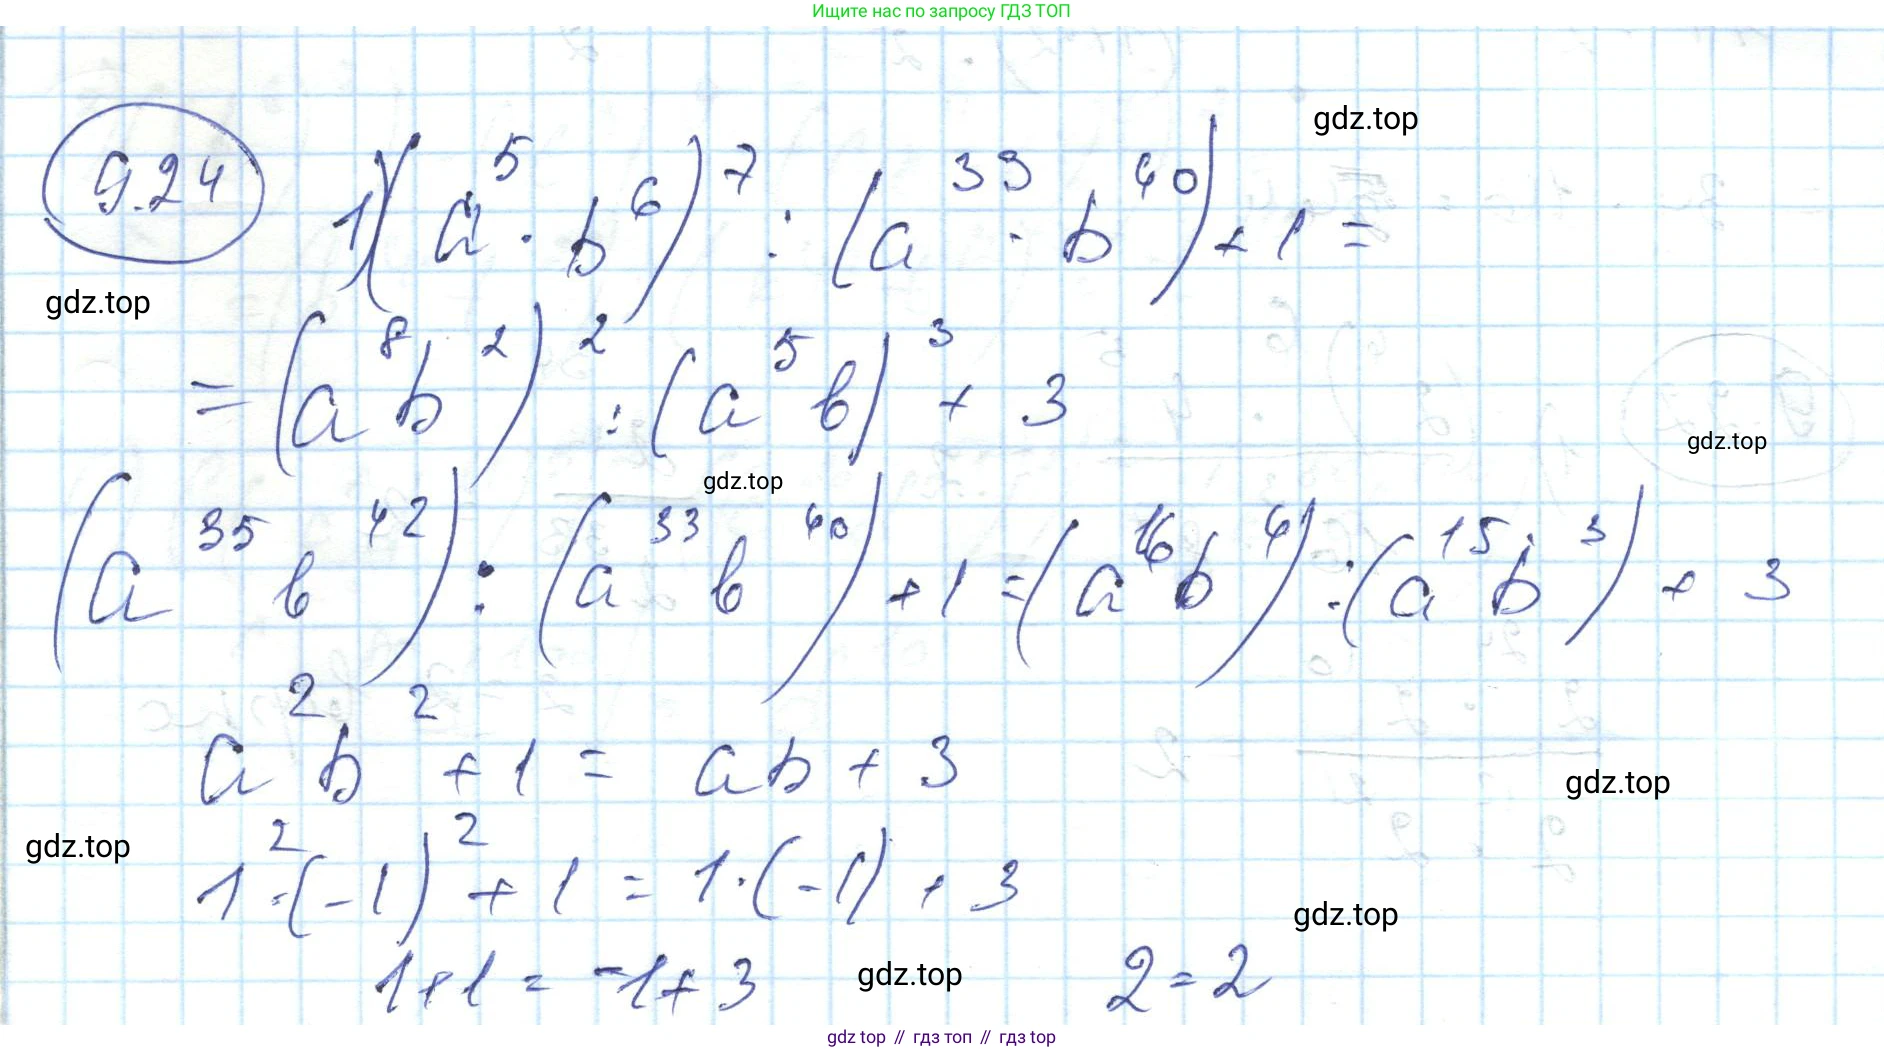 Ищите нас по запросу ГДЗ ТОП
gdz.top
9.24 1) (a⁵ · b⁶)⁷ : (a³³ · b⁴⁰) + 1 =
gdz.top
= (a⁸b²)² : (a⁵b)³ + 3
gdz.top
gdz.top
(a³⁵b⁴²) : (a³³b⁴⁰) + 1 = (a¹⁶b⁴) : (a¹⁵b³) + 3
a²b² + 1 = ab + 3
gdz.top
gdz.top
1² · (-1)² + 1 = 1 · (-1) + 3
gdz.top
1 + 1 = -1 + 3 gdz.top 2 = 2
gdz top // гдз топ // гдз top